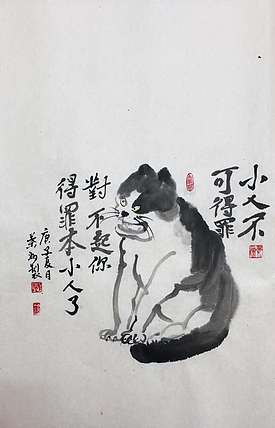 小人不
可得罪
對不起你
得罪本小人了
庚子夏日
製